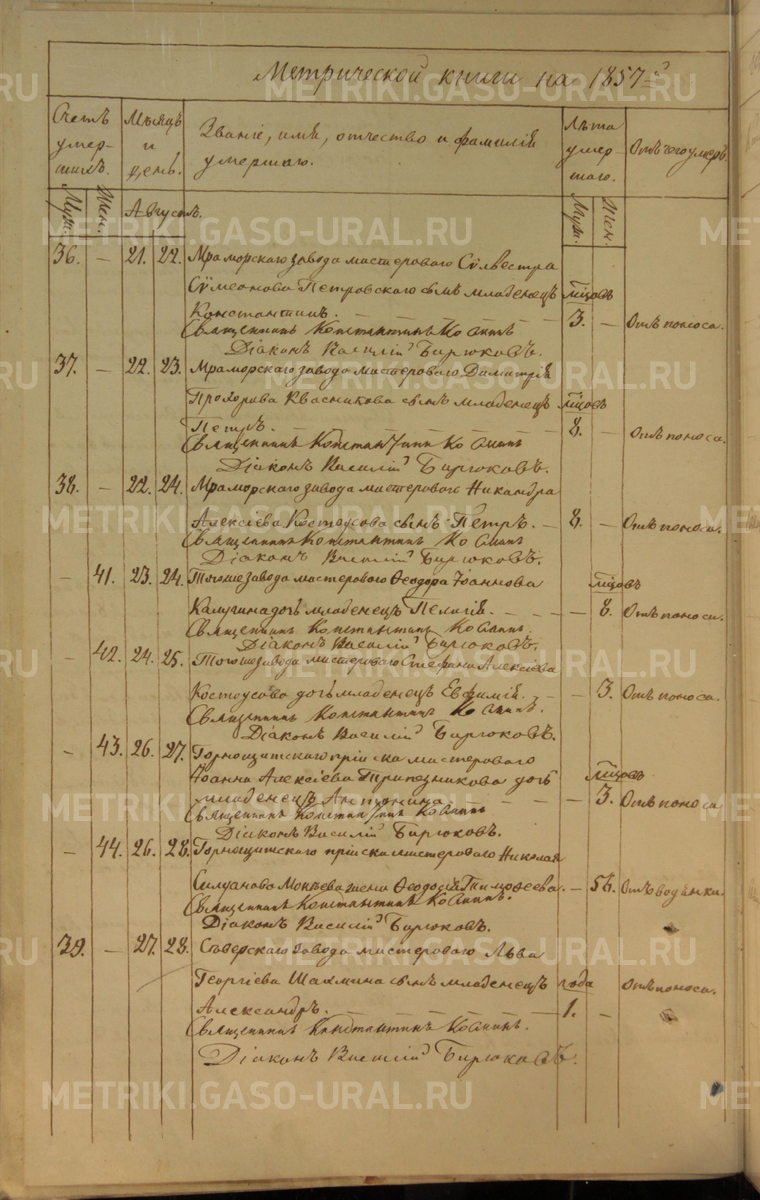 Метрической книги на 1857й
Счетъ умер- шихъ. Мѣсяцъ и день. Званіе, имя, отчество и фамилія умершаго. Лѣта умер- шаго. Отъ чего умеръ.
Муж. Жен. Августъ. Муж. Жен.
36. — 21. 22. Мраморскаго завода мастероваго Сѵлвестра
Сѵмеонова Петровскаго сынъ младенецъ м҃цовъ
Константинъ. — — — — — 3. — Отъ поноса.
Священникъ Константинъ
Діаконъ Василій Бирюковъ.
37. — 22. 23. Мраморскаго завода мастероваго Димитрія
Прохорова Квасникова сынъ младенецъ м҃цовъ
Петръ. — — — — — 8. — Отъ поноса.
Священникъ Константинъ
Діаконъ Василій Бирюковъ.
38. — 22. 24. Мраморскаго завода мастероваго Никандра
Алексіева Костоусова сынъ Петръ. — 8. — Отъ поноса.
Священникъ Константинъ
Діаконъ Василій Бирюковъ.
— 41. 23. 24. Тогоже завода мастероваго Ѳеодора Іоаннова м҃цовъ
Калугина дочь младенецъ Пелагія. — — — — 8. Отъ поноса.
Священникъ Константинъ
Діаконъ Василій Бирюковъ.
— 42. 24. 25. Тогоже завода мастероваго Стефана Алексіева
Костоусова дочь младенецъ Евфимія. — — 3. Отъ поноса.
Священникъ Константинъ
Діаконъ Василій Бирюковъ.
— 43. 26. 27. Горнощитскаго пріиска мастероваго
Іоанна Алексіева Трапезникова дочь м҃цовъ
младенецъ Антонина — — — — 3. Отъ поноса
Священникъ Константинъ
Діаконъ Василій Бирюковъ.
— 44. 26. 28. Горнощитскаго пріиска мастероваго Николая
Силуанова жена Ѳеодосія Тимоѳеева. — 58. Отъ водянки.
Священникъ Константинъ
Діаконъ Василій Бирюковъ.
39. — 27. 28. Сѣверскаго завода мастероваго Льва
Георгіева Шахмина сынъ младенецъ года Отъ поноса.
Александръ. — — — — — 1. —
Священникъ Константинъ
Діаконъ Василій Бирюковъ.
METRIKI.GASO-URAL.RU